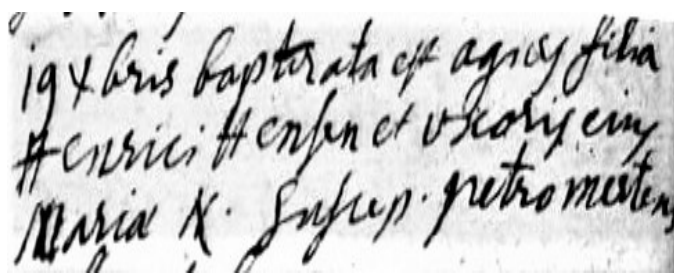 19 Xbris baptizata est agnes filia
Henrici Hensen et uxoris eius
Maria N. Suscep. petro mertens